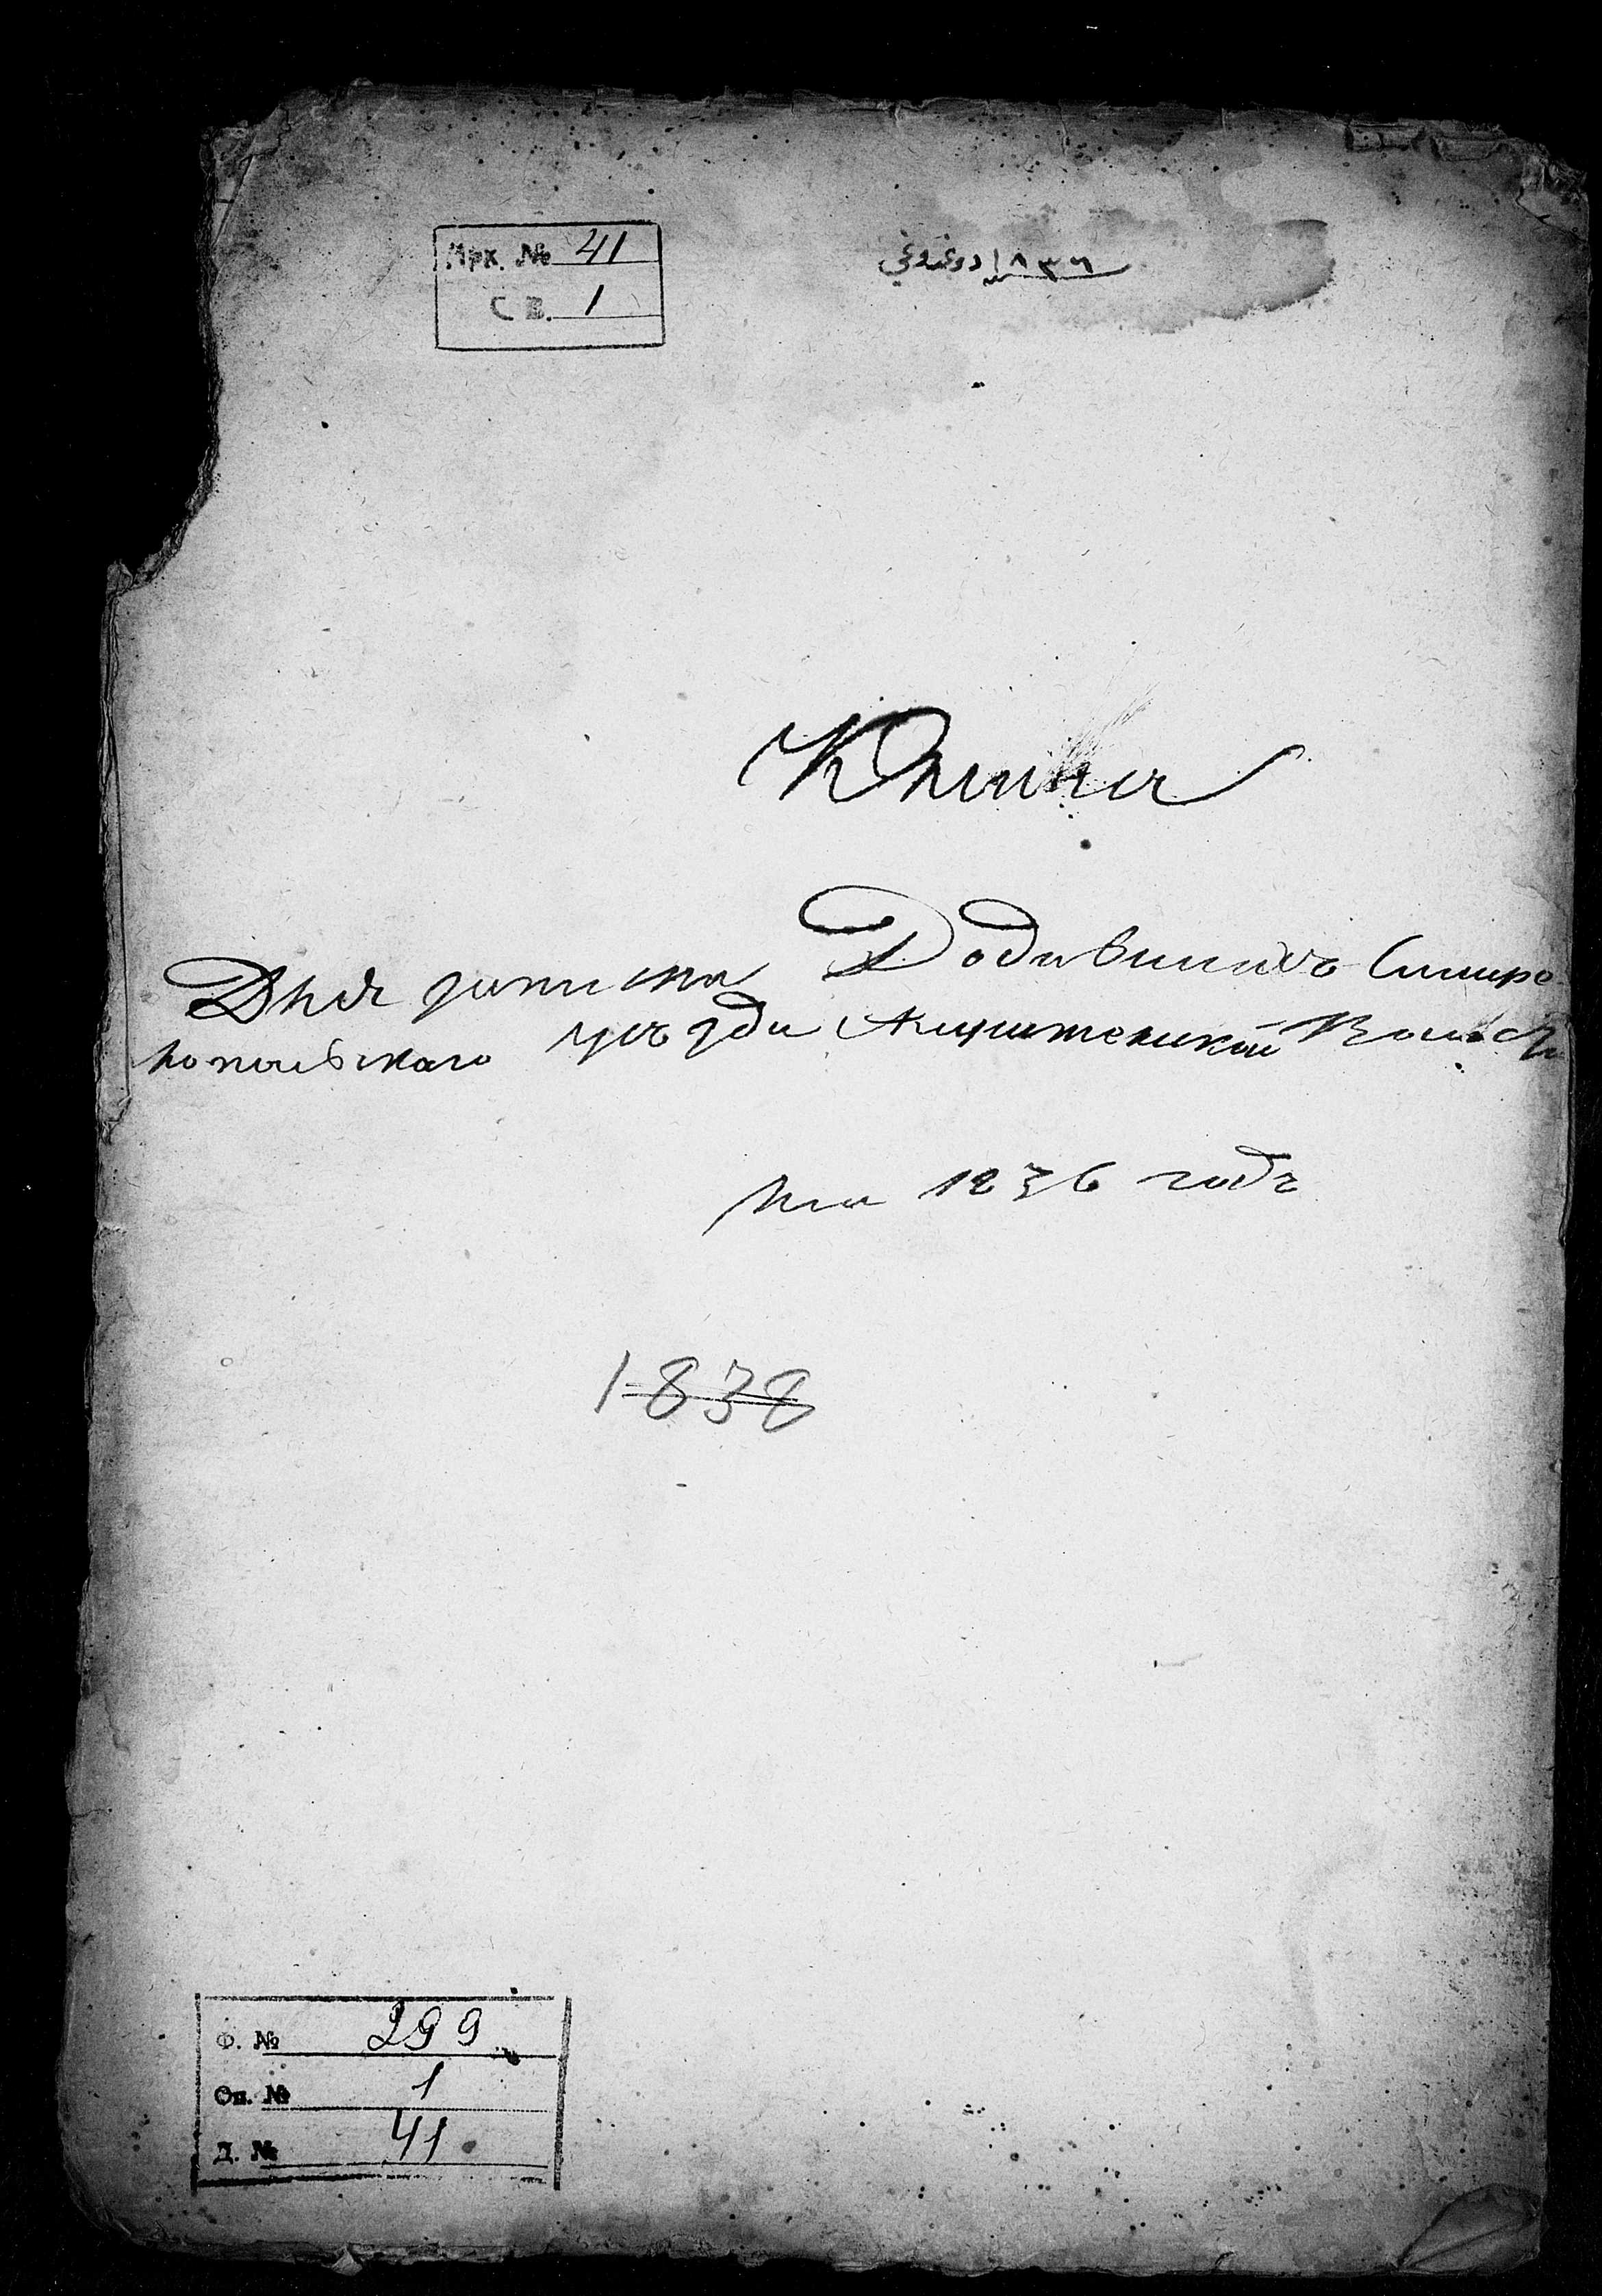 Арх. № 41
Св. 1
١٨٣٦
Книга
Для записка Родившихся Симфе
ропольскаго уѣзди Волости
на 1836 годъ
1838
Ф. № 299
Оп. № 1
Д. № 41